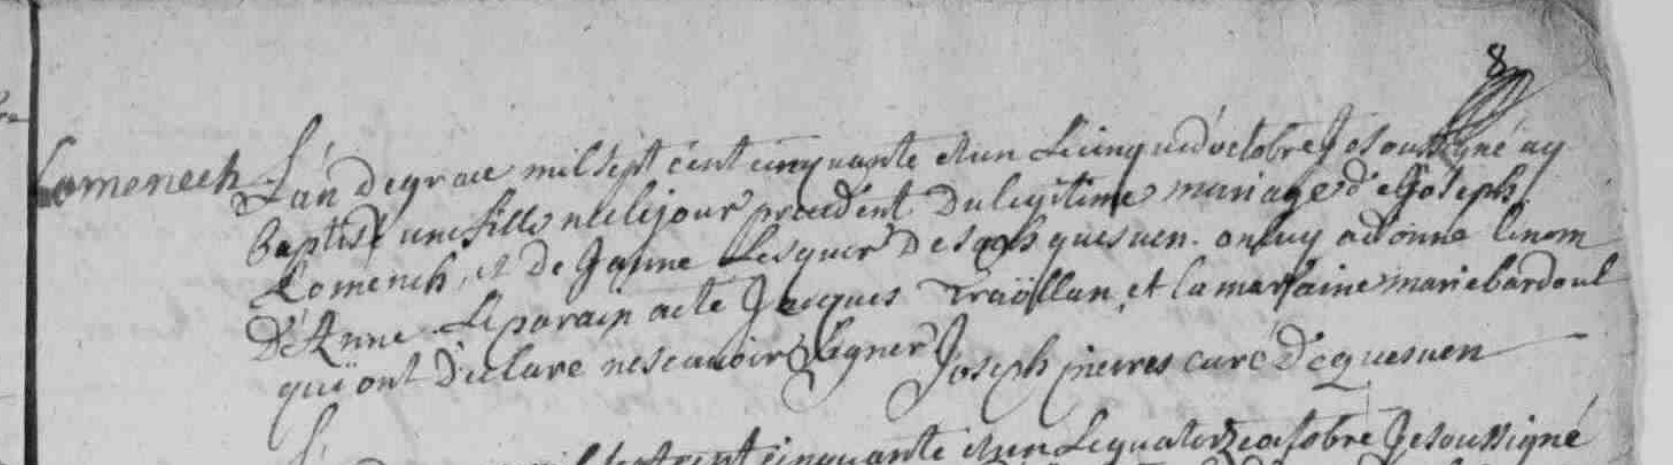 8
Lomenech
L'an de grace mil sept cent cinquante et un Le cinq d'octobre Je soussigné ay
Baptisé une fille née le jour precedent Du legitime mariage de Joseph
Lomench, et De Janne Lesquer De quesven. on luy a donne le nom
D'Anne. Le parain a été Jacques et la maraine marie bardoul
qui ont declaré ne scavoir signer Joseph pierres curé De quesven
cinquante et un Le quatorze octobre Je soussigné